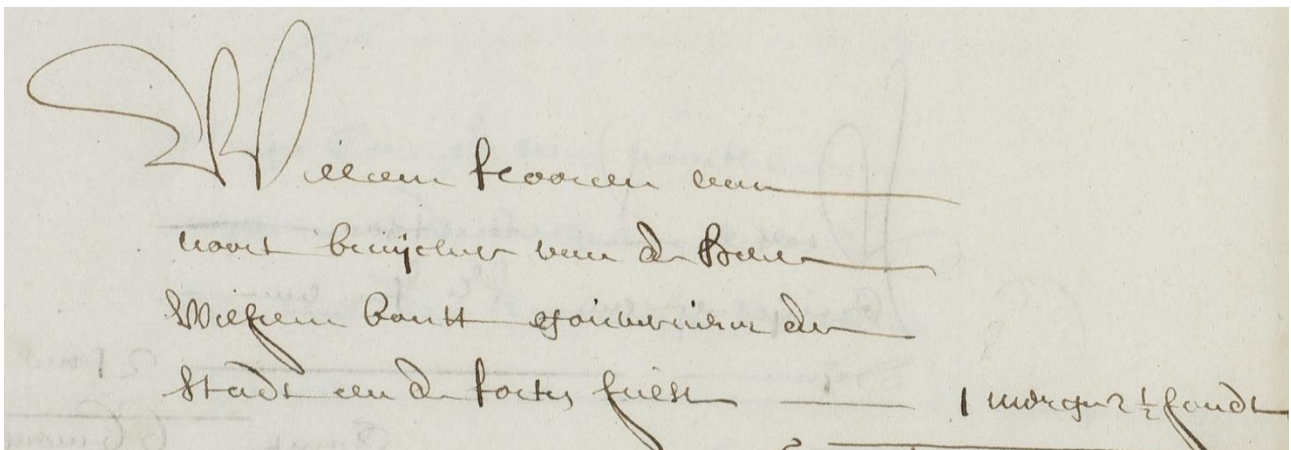 Willem flooren van
noort bruijcker van de Heer
Wilhem bontt gouverneur der
Stadt ende fortes hulst 1 morgen 2 ½ hondt